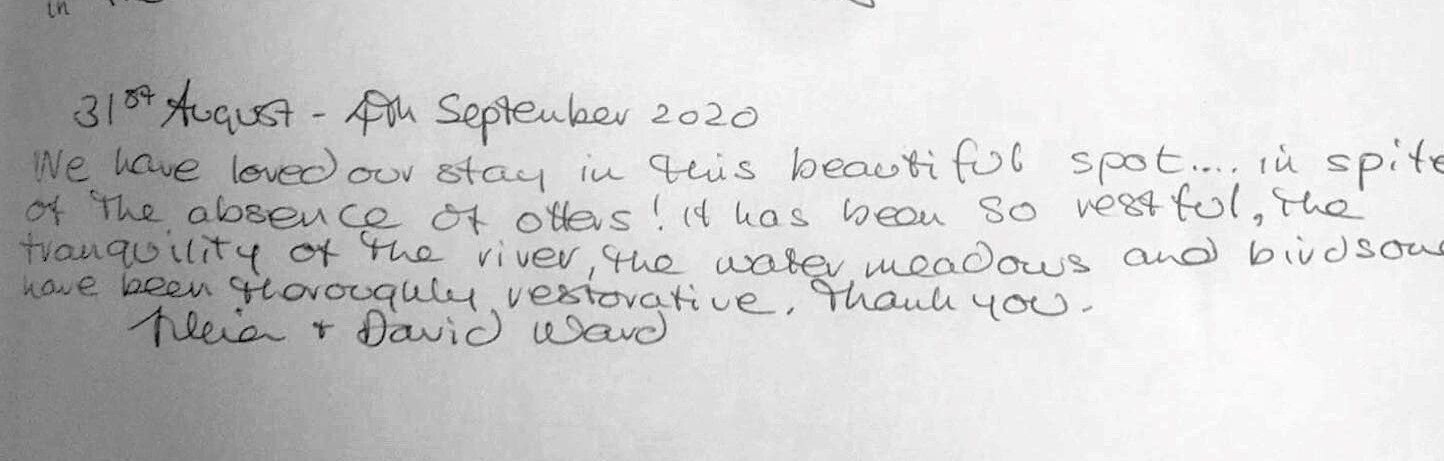 in
31st August - 4th September 2020
We have loved our stay in this beautiful spot.... in spite
of the absence of otters! it has been so restful, the
tranquility of the river, the water meadows and birdsong
have been thoroughly restorative. Thank you.
+ David Ward